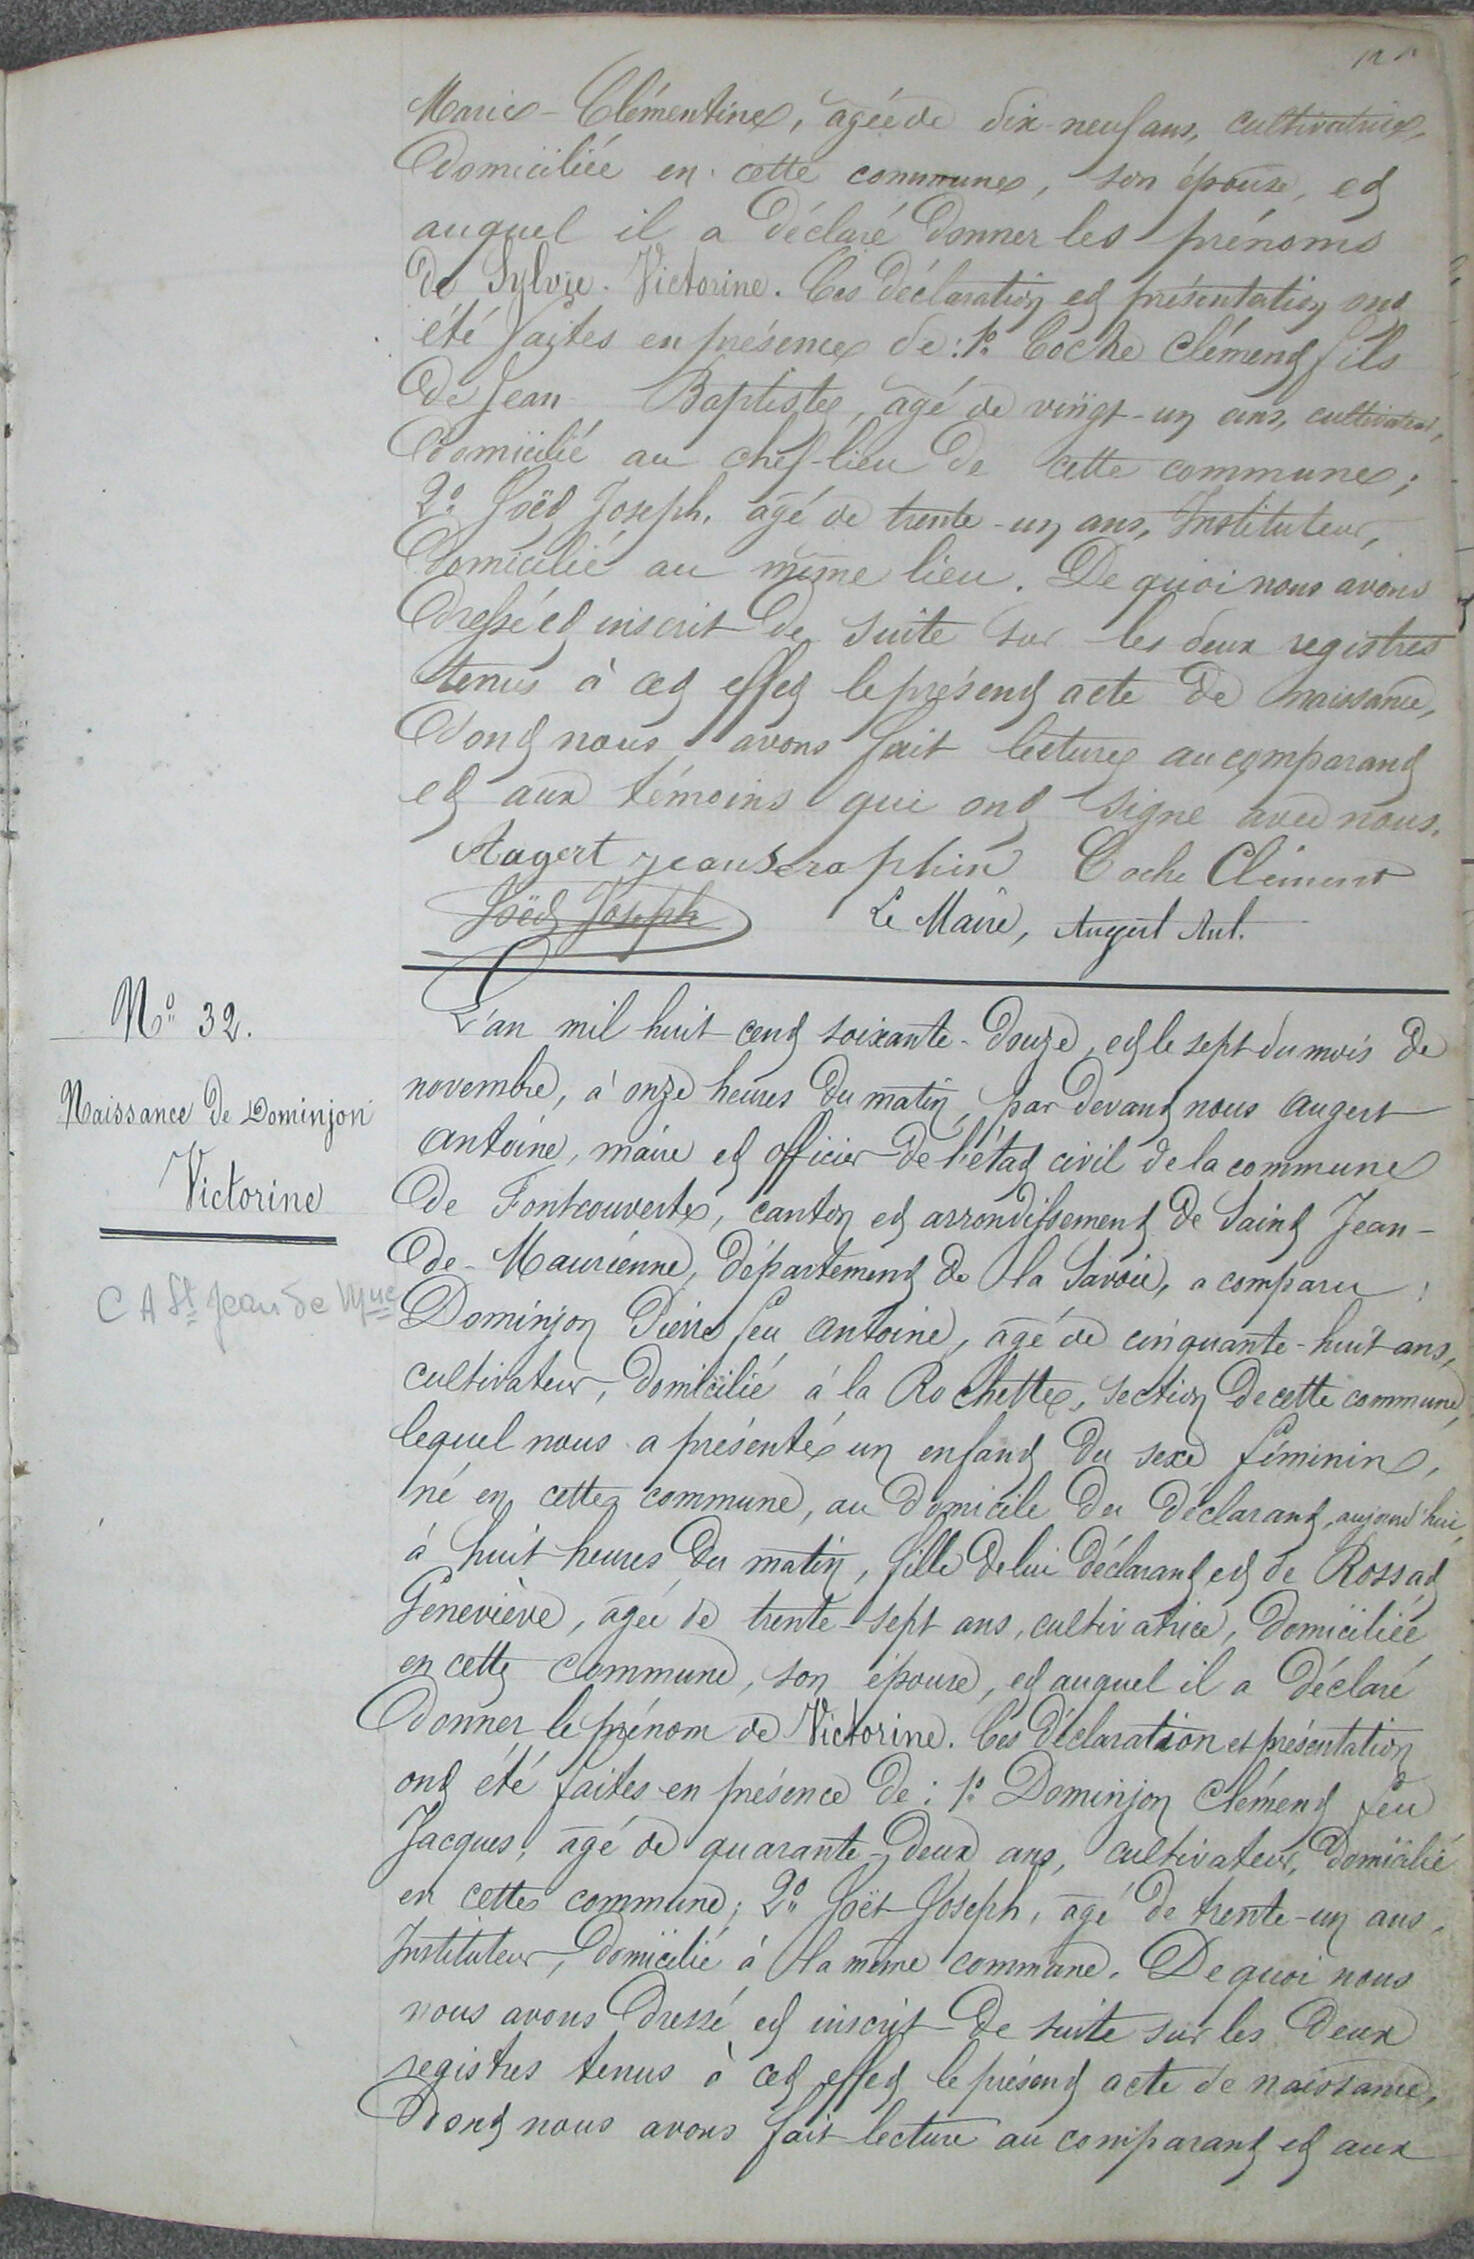 Marie-Clémentine, agée de dix-neuf ans, cultivatrice,
Domiciliée en cette commune, son épouse, et
auquel il a Déclaré Donner les prénoms
De Sylvie-Victorine. Ces Déclaration et présentation ont
été faites en présence de: 1º Coche Clément fils
De Jean Baptiste, agé de vingt-un ans, cultivateur,
Domicilié au chef-lieu De cette commune;
2º Joseph, agé de trente-un ans, Instituteur,
Domicilié au même lieu. De quoi nous avons
Dressé et inscrit De suite sur les deux registres
tenus à cet effet le présent acte De naissance,
Dont nous avons fait lecture au comparant
et aux témoins qui ont signé avec nous.
Augert jean Seraphin Coche Clément
Joseph Le Maire, Augert Ant.
Nº 32.
Naissance De Dominjon
Victorine
C A St Jean de Mne
L'an mil huit cent soixante-Douze, et le sept du mois De
novembre, à onze heures Du matin, par Devant nous Augert
Antoine, maire et officier De l'état civil de la commune
De Fontcouverte, canton et arrondissement De Saint Jean-
De-Maurienne, Département De la Savoie, a comparu:
Dominjon Pierre feu Antoine, agé de cinquante-huit ans,
cultivateur, Domicilié à la Rochette, section De cette commune,
lequel nous a présenté un enfant Du sexe féminin,
né en cette commune, au Domicile Du Déclarant, aujourd'hui,
à huit heures Du matin, fille De lui Déclarant et de Rossat
Geneviève, agée de trente-sept ans, cultivatrice, Domiciliée
en cette commune, son épouse, et auquel il a Déclaré
Donner le prénom de Victorine. Ces Déclaration et présentation
ont été faites en présence De: 1º Dominjon Clément feu
Jacques, agé de quarante-Deux ans, cultivateur, Domicilié
en cette commune; 2º Joseph, agé De trente-un ans,
Instituteur, Domicilié à la même commune. De quoi nous
nous avons Dressé et inscrit De suite sur les Deux
registres tenus à cet effet le présent acte de naissance,
Dont nous avons fait lecture au comparant et aux